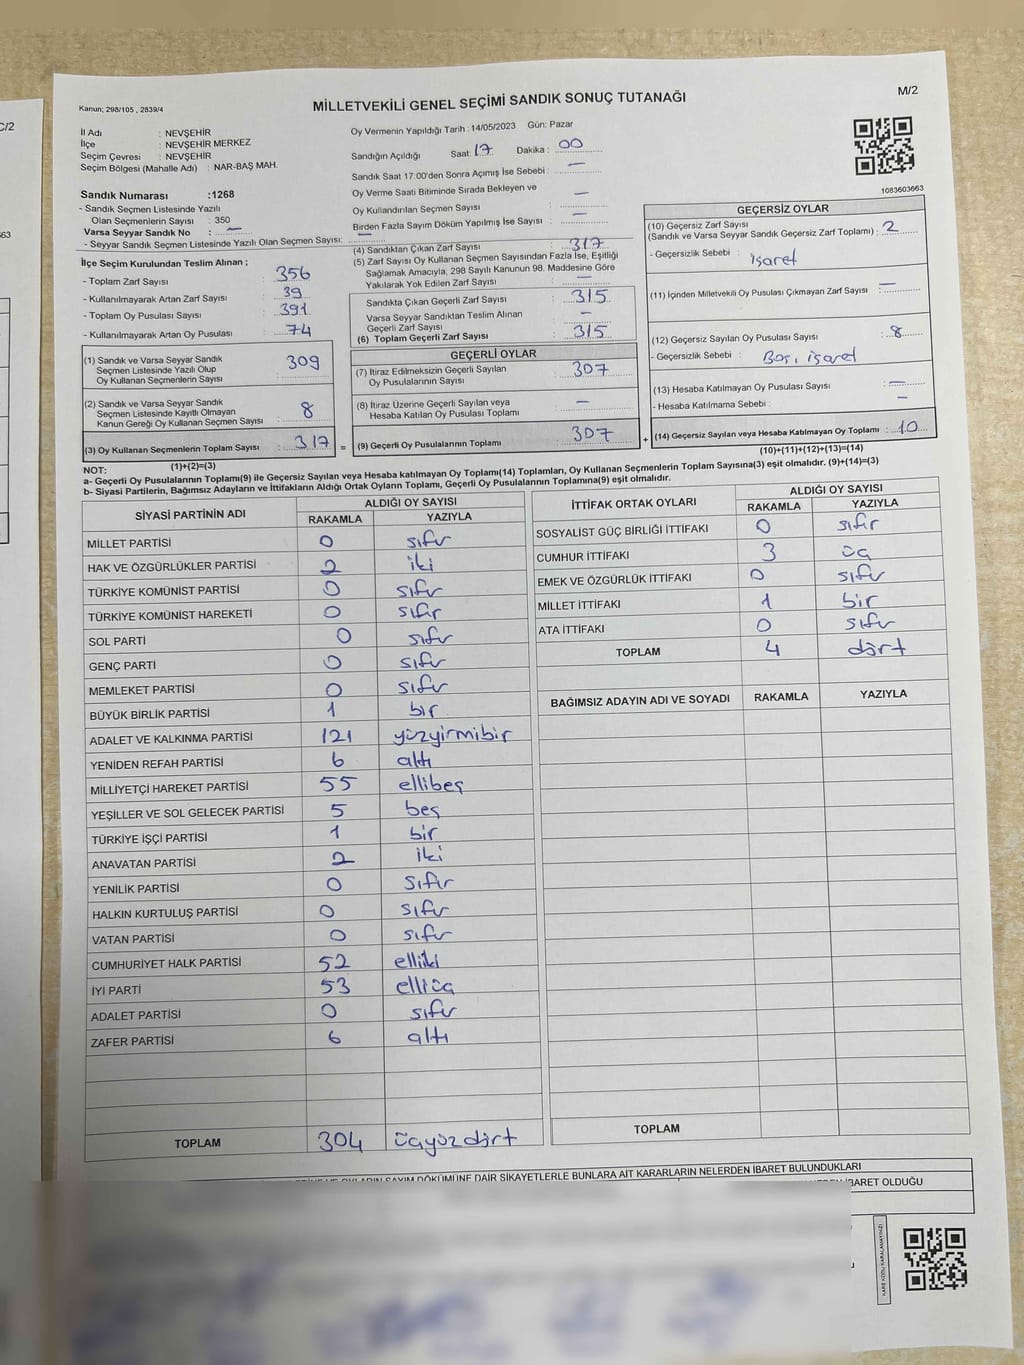 C/2
63
M/2
Kanun; 298/105 , 2839/4
MİLLETVEKİLİ GENEL SEÇİMİ SANDIK SONUÇ TUTANAĞI
İl Adı : NEVŞEHİR
İlçe : NEVŞEHİR MERKEZ
Seçim Çevresi : NEVŞEHİR
Seçim Bölgesi (Mahalle Adı) : NAR-BAŞ MAH.
Sandık Numarası :1268
- Sandık Seçmen Listesinde Yazılı
Olan Seçmenlerin Sayısı : 350
Varsa Seyyar Sandık No : –
- Seyyar Sandık Seçmen Listesinde Yazılı Olan Seçmen Sayısı: –
Oy Vermenin Yapıldığı Tarih :14/05/2023 Gün: Pazar
Sandığın Açıldığı Saat: 17 Dakika : 00
Sandık Saat 17:00'den Sonra Açımış İse Sebebi : –
Oy Verme Saati Bitiminde Sırada Bekleyen ve
Oy Kullandırılan Seçmen Sayısı : –
Birden Fazla Sayım Döküm Yapılmış İse Sayısı : –
1083603663
İlçe Seçim Kurulundan Teslim Alınan ;
- Toplam Zarf Sayısı : 356
- Kullanılmayarak Artan Zarf Sayısı : 39
- Toplam Oy Pusulası Sayısı : 391
- Kullanılmayarak Artan Oy Pusulası : 74
(1) Sandık ve Varsa Seyyar Sandık
Seçmen Listesinde Yazılı Olup
Oy Kullanan Seçmenlerin Sayısı : 309
(2) Sandık ve Varsa Seyyar Sandık
Seçmen Listesinde Kayıtlı Olmayan
Kanun Gereği Oy Kullanan Seçmen Sayısı : 8
(3) Oy Kullanan Seçmenlerin Toplam Sayısı : 317
(1)+(2)=(3)
(4) Sandıktan Çıkan Zarf Sayısı : 317
(5) Zarf Sayısı Oy Kullanan Seçmen Sayısından Fazla İse, Eşitliği
Sağlamak Amacıyla, 298 Sayılı Kanunun 98. Maddesine Göre
Yakılarak Yok Edilen Zarf Sayısı : –
Sandıkta Çıkan Geçerli Zarf Sayısı : 315
Varsa Seyyar Sandıktan Teslim Alınan
Geçerli Zarf Sayısı : –
(6) Toplam Geçerli Zarf Sayısı : 315
GEÇERLİ OYLAR
(7) İtiraz Edilmeksizin Geçerli Sayılan
Oy Pusulalarının Sayısı : 307
(8) İtiraz Üzerine Geçerli Sayılan veya
Hesaba Katılan Oy Pusulası Toplamı : –
= (9) Geçerli Oy Pusulalarının Toplamı : 307
GEÇERSİZ OYLAR
(10) Geçersiz Zarf Sayısı
(Sandık ve Varsa Seyyar Sandık Geçersiz Zarf Toplamı) : 2
- Geçersizlik Sebebi : işaret
(11) İçinden Milletvekili Oy Pusulası Çıkmayan Zarf Sayısı : –
(12) Geçersiz Sayılan Oy Pusulası Sayısı : 8
- Geçersizlik Sebebi : Boş, işaret
(13) Hesaba Katılmayan Oy Pusulası Sayısı : –
- Hesaba Katılmama Sebebi : –
+ (14) Geçersiz Sayılan veya Hesaba Katılmayan Oy Toplamı : 10
(10)+(11)+(12)+(13)=(14)
NOT:
a- Geçerli Oy Pusulalarının Toplamı(9) ile Geçersiz Sayılan veya Hesaba katılmayan Oy Toplamı(14) Toplamları, Oy Kullanan Seçmenlerin Toplam Sayısına(3) eşit olmalıdır. (9)+(14)=(3)
b- Siyasi Partilerin, Bağımsız Adayların ve İttifakların Aldığı Ortak Oyların Toplamı, Geçerli Oy Pusulalarının Toplamına(9) eşit olmalıdır.
SİYASİ PARTİNİN ADI ALDIĞI OY SAYISI
RAKAMLA YAZIYLA
MİLLET PARTİSİ 0 sıfır
HAK VE ÖZGÜRLÜKLER PARTİSİ 2 iki
TÜRKİYE KOMÜNİST PARTİSİ 0 sıfır
TÜRKİYE KOMÜNİST HAREKETİ 0 sıfır
SOL PARTİ 0 sıfır
GENÇ PARTİ 0 sıfır
MEMLEKET PARTİSİ 0 sıfır
BÜYÜK BİRLİK PARTİSİ 1 bir
ADALET VE KALKINMA PARTİSİ 121 yüzyirmibir
YENİDEN REFAH PARTİSİ 6 altı
MİLLİYETÇİ HAREKET PARTİSİ 55 ellibeş
YEŞİLLER VE SOL GELECEK PARTİSİ 5 beş
TÜRKİYE İŞÇİ PARTİSİ 1 bir
ANAVATAN PARTİSİ 2 iki
YENİLİK PARTİSİ 0 sıfır
HALKIN KURTULUŞ PARTİSİ 0 sıfır
VATAN PARTİSİ 0 sıfır
CUMHURİYET HALK PARTİSİ 52 elliiki
İYİ PARTİ 53 elliüç
ADALET PARTİSİ 0 sıfır
ZAFER PARTİSİ 6 altı
TOPLAM 304 üçyüzdört
İTTİFAK ORTAK OYLARI ALDIĞI OY SAYISI
RAKAMLA YAZIYLA
SOSYALİST GÜÇ BİRLİĞİ İTTİFAKI 0 sıfır
CUMHUR İTTİFAKI 3 üç
EMEK VE ÖZGÜRLÜK İTTİFAKI 0 sıfır
MİLLET İTTİFAKI 1 bir
ATA İTTİFAKI 0 sıfır
TOPLAM 4 dört
BAĞIMSIZ ADAYIN ADI VE SOYADI RAKAMLA YAZIYLA
TOPLAM
SAYIM DÖKÜMÜNE DAİR ŞİKAYETLERLE BUNLARA AİT KARARLARIN NELERDEN İBARET BULUNDUKLARI
İBARET OLDUĞU